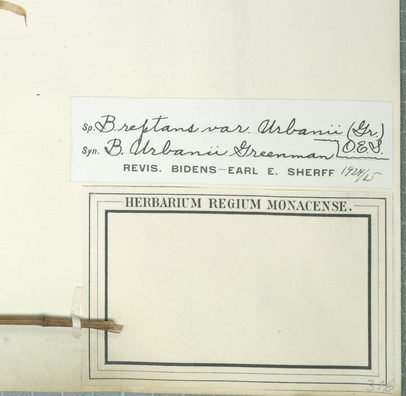 Sp. B. reptans var. Urbanii (Gr.)
Syn. B. Urbanii Greenman O.E.S.
REVIS. BIDENS—EARL E. SHERFF 1924/25
HERBARIUM REGIUM MONACENSE.